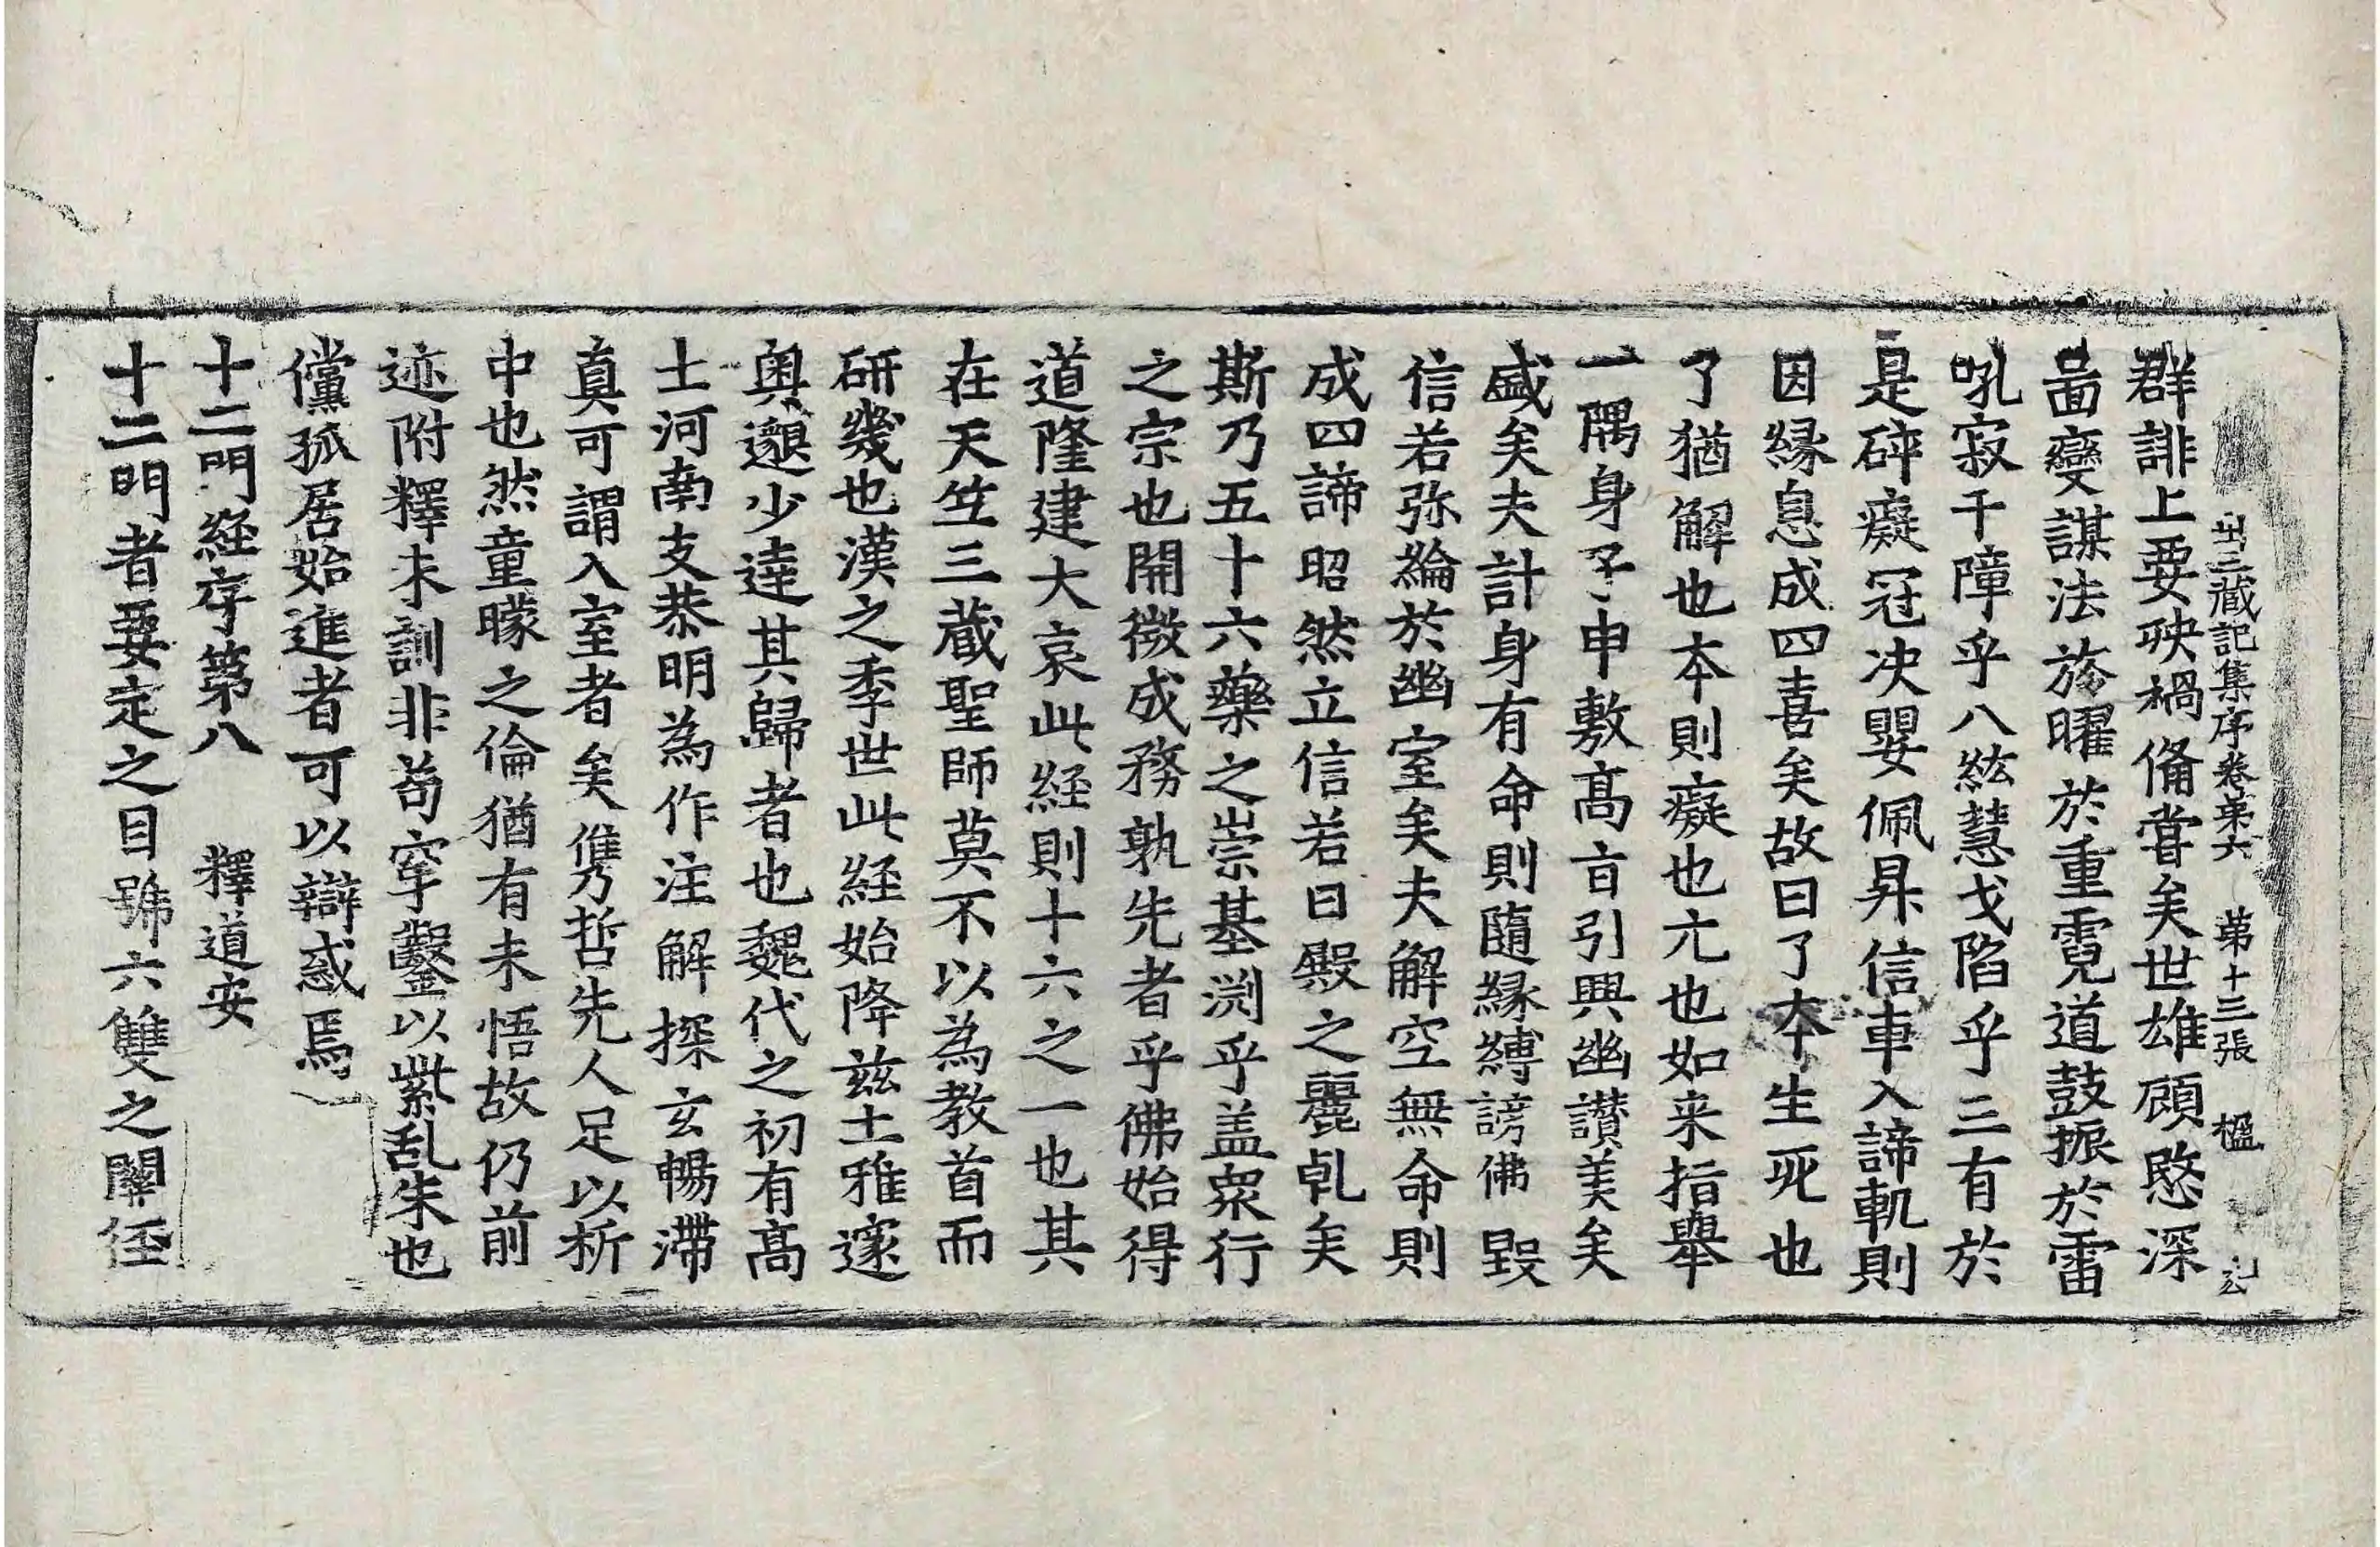 出三藏記集序卷第六 第十三張 楹
群誹上要殃禍備嘗矣世雄顧愍深
啚變謀法旍曜於重霓道鼓振於雷
吼寂千障乎八紘慧戈陷乎三有於
是碎癡冠決嬰佩昇信車入諦軌則
因緣息成四喜矣故曰了本生死也
了猶解也本則癡也亢也如来指舉
一隅身子申敷高㫖引興幽讃美矣
盛矣夫計身有命則隨緣縛謗佛毀
信若弥綸於幽室矣夫解空無命則
成四諦昭然立信若日殿之麗乹矣
斯乃五十六藥之崇基渕乎盖衆行
之宗也開微成務孰先者乎佛始得
道隆建大哀此経則十六之一也其
在天竺三蔵聖師莫不以為教首而
研幾也漢之季世此経始降兹土雅邃
奥邈少達其歸者也魏代之初有高
士河南支恭明為作注解探玄暢滯
真可謂入室者矣儁哲先人足以析
中也然童矇之倫猶有未悟故仍前
迹附釋未訓非苟穿鑿以紫乱朱也
儻孤居始進者可以辯惑焉
十二門経序第八 釋道安
十二門者要定之目號六雙之關徑